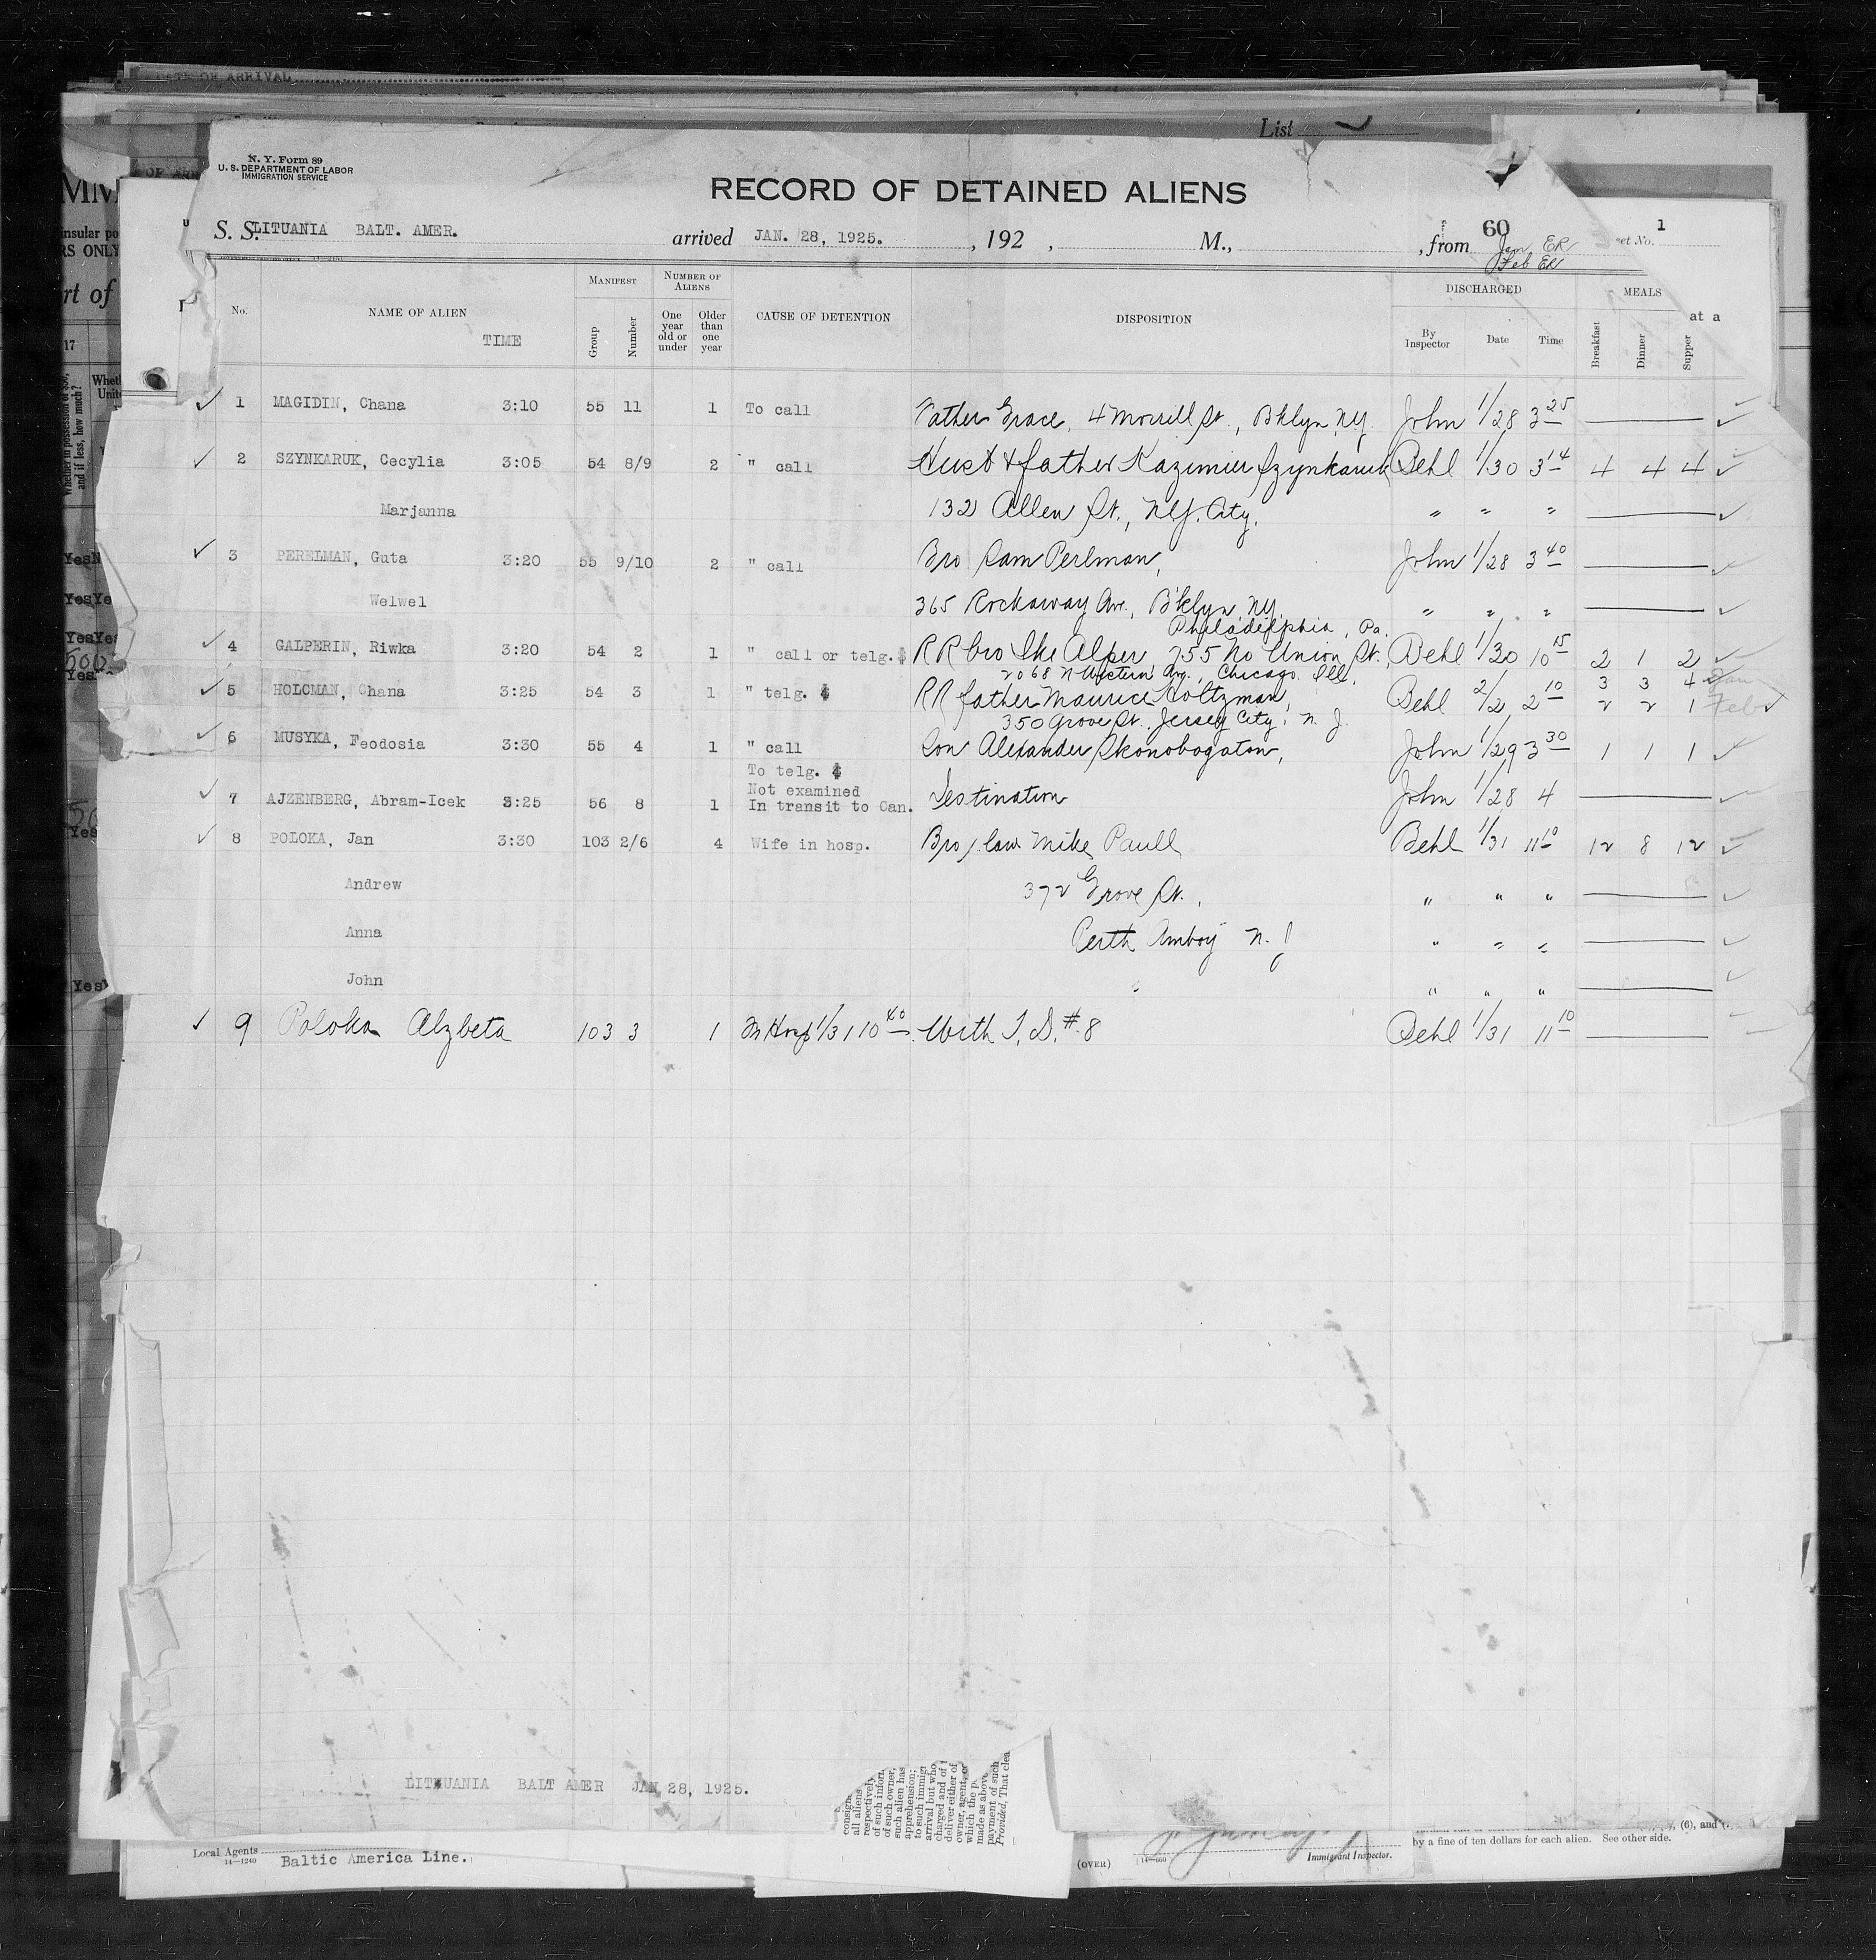 OF ARRIVAL
List
N. Y. Form 89
U. S. DEPARTMENT OF LABOR
IMMIGRATION SERVICE
RECORD OF DETAINED ALIENS
S. S. LITUANIA BALT. AMER. arrived JAN. 28, 1925. , 192 , M., , from 60 1
Jan ER
Feb ER
No. NAME OF ALIEN TIME MANIFEST Group Number NUMBER OF ALIENS One year old or under Older than one year CAUSE OF DETENTION DISPOSITION DISCHARGED By Inspector Date Time MEALS Breakfast Dinner Supper
at a
1 MAGIDIN, Chana 3:10 55 11 1 To call Father Grace, 4 Morrell St., Bklyn NY. John 1/28 3 25
2 SZYNKARUK, Cecylia 3:05 54 8/9 2 " call Husb & father Kazimier Szynkaruk Behl 1/30 3 14 4 4 4
Marjanna 132 Allen St., N.Y. City. " " "
3 PERELMAN, Guta 3:20 55 9/10 2 " call Bro Sam Perlman, John 1/28 3 40
Welwel 365 Rockaway Av., B'klyn, NY. " " "
Philadelphia, Pa.
4 GALPERIN, Riwka 3:20 54 2 1 " call or telg. $ RR bro Ike Alper, 755 No Union St. Behl 1/30 10 15 2 1 2
2068 N Western Av., Chicago Ill. 3 3 4 Jan
5 HOLCMAN, Chana 3:25 54 3 1 " telg. $ RR father Maurice Holtzman, Behl 2/2 2 10 2 2 1 Feb
350 Grove St. Jersey City, N. J.
6 MUSYKA, Feodosia 3:30 55 4 1 " call Son Alexander Skonobogaton, John 1/29 3 30 1 1 1
To telg. $
Not examined
7 AJZENBERG, Abram-Icek 3:25 56 8 1 In transit to Can. Destination John 1/28 4
8 POLOKA, Jan 3:30 103 2/6 4 Wife in hosp. Bro / law Mike Paull Behl 1/31 11 10 12 8 12
Andrew 372 Grove St., " " "
Anna Perth Amboy N. J " " "
John " " "
9 Poloka Alzbeta 103 3 1 In Hosp 1/31 10 40 With S. D. # 8 Behl 1/31 11 10
LITHUANIA BALT AMER JAN 28, 1925.
Local Agents Baltic America Line.
14—1240
(OVER)
Immigrant Inspector.
by a fine of ten dollars for each alien. See other side.